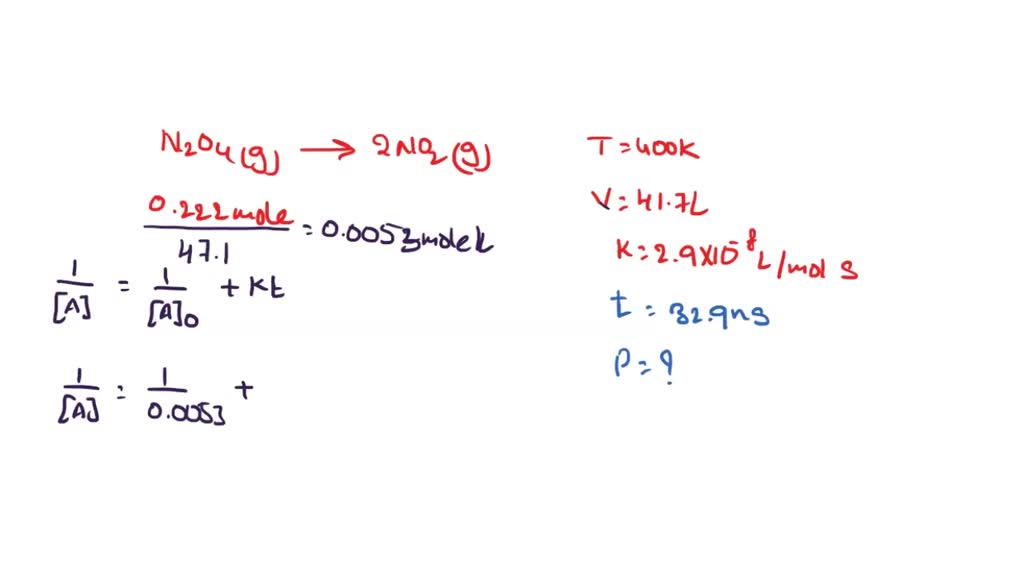 N2O4(g) → 2NO2(g)
0.222mole / 47.1 = 0.0053moleL
1/[A] = 1/[A]0 + Kt
1/[A] = 1/0.0053 +
T=400K
V=41.7L
K=2.9×10^-8 L/mol S
t = 32.9ns
P=?